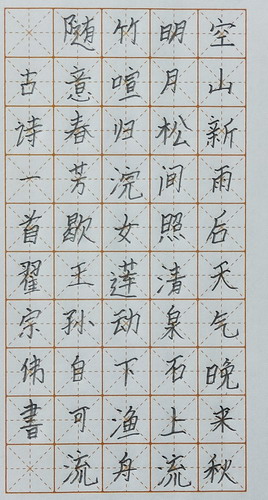 空山新雨后天气晚来秋
明月松间照清泉石上流
竹喧归浣女莲动下渔舟
随意春芳歇王孙自可流
古诗一首翟宗伟書